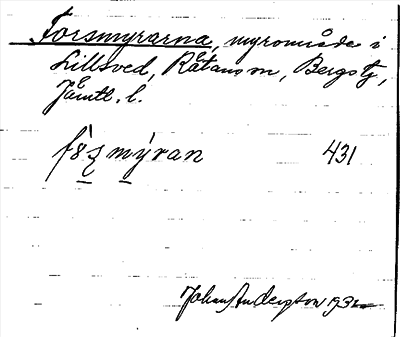 Forsmyrarna, myrområde i
Lillsved, Råtans sn, Bergs tg,
Jämtl. l.
fȯ̀ṣmy̍ran 431
Johan Anderzton 1931